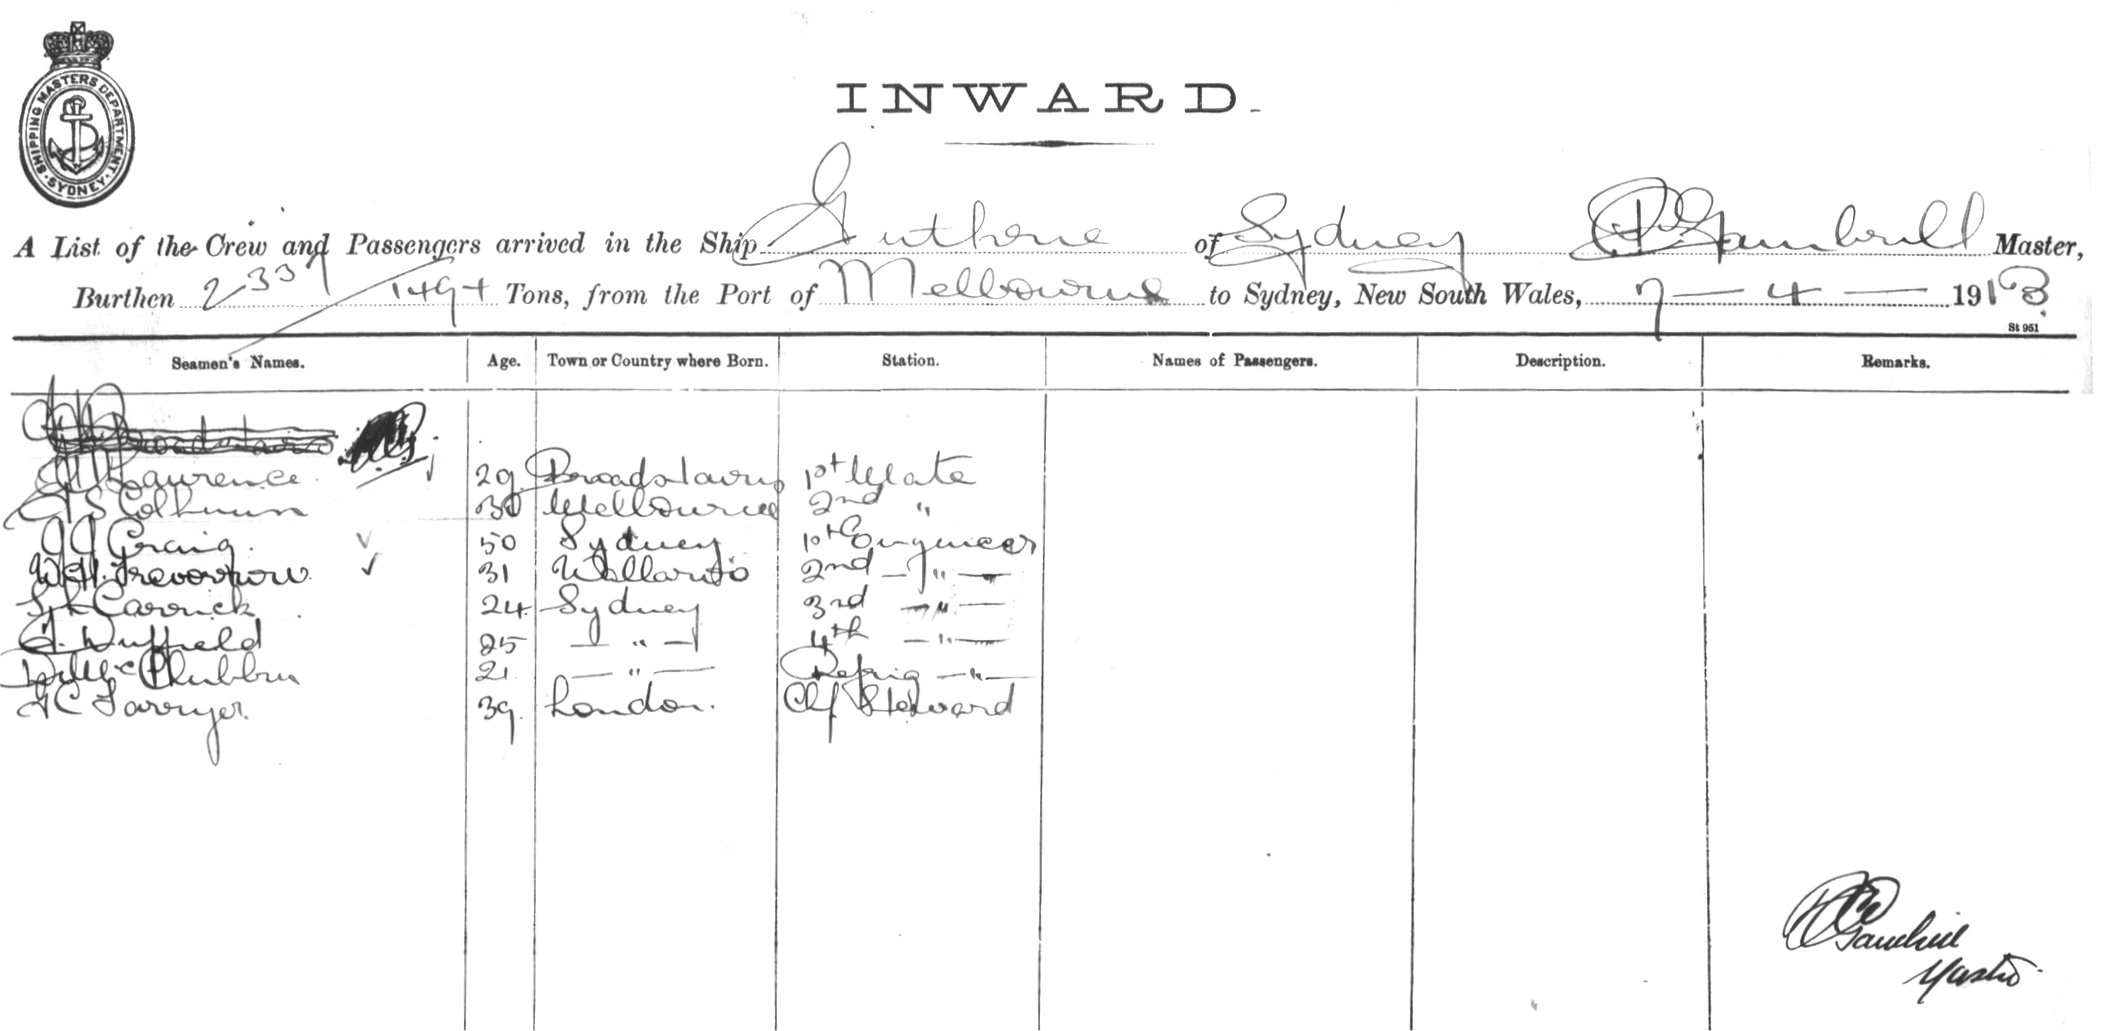 SHIPPING MASTERS DEPARTMENT. SYDNEY.
INWARD.
A List of the Crew and Passengers arrived in the Ship Guthrie of Sydney Master,
Burthen 2337 1494 Tons, from the Port of Melbourne to Sydney, New South Wales, 7-4-1913
St 951
Seamen's Names. Age. Town or Country where Born. Station. Names of Passengers. Description. Remarks.
Lawrence 29 Broadstairs 1st Mate
Colhoun 30 Melbourne 2nd "
Craig. 50 Sydney 1st Engineer
W.H. Trevorrow. 31 Wallaroo 2nd - " -
Carrick 24 Sydney 3rd - " -
Duffield 25 - " - 4th - " -
21 - " - Refrig - " -
39. London. Chf Steward
Master